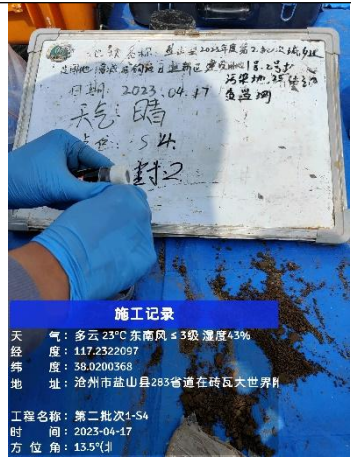 地块名称：盐山县2022年度第2批次城乡
日期：2023.04.17
天气：晴
点位：S4
封口
施工记录
天　气：多云 23℃ 东南风 ≤ 3级 湿度43%
经　度：117.2322097
纬　度：38.0200368
地　址：沧州市盐山县283省道在砖瓦大世界
工程名称：第二批次1-S4
时　间：2023-04-17
方 位 角：13.5°(北